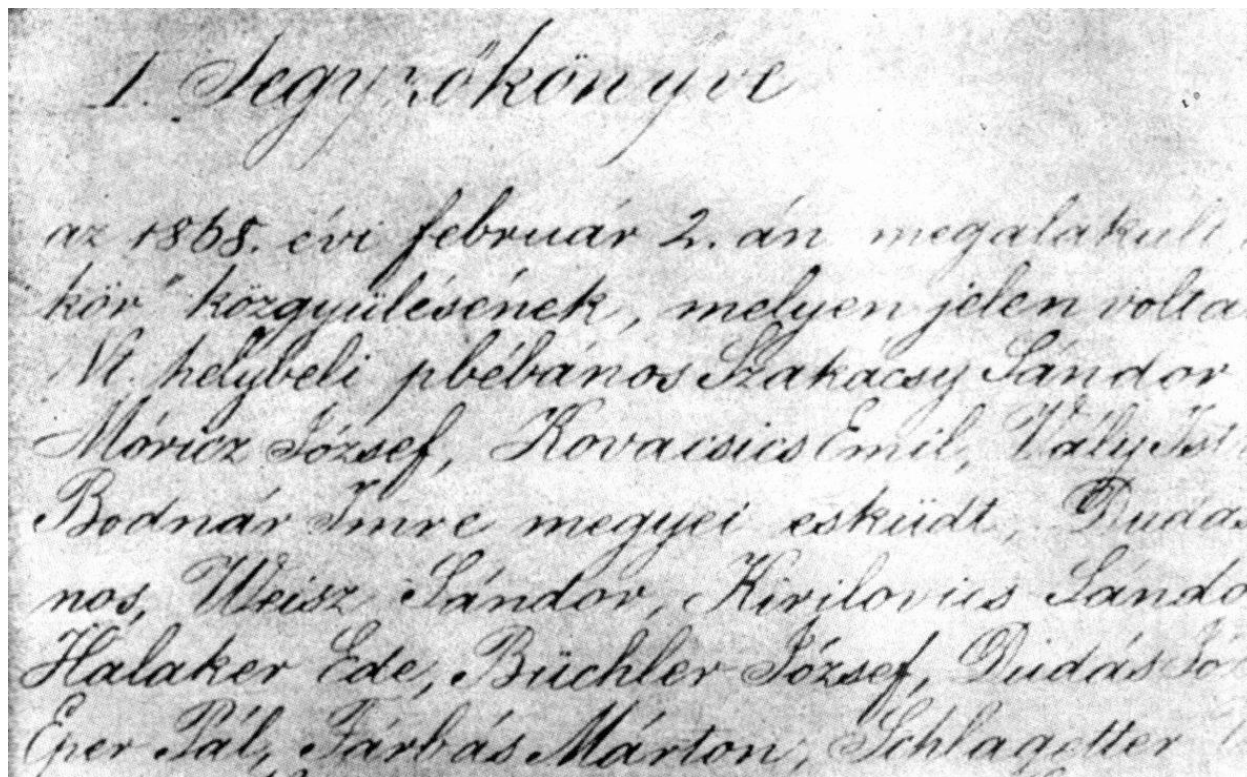 I. Jegyzőkönyve
az 1868. évi február 2. án megalakult
kör" közgyülésének, melyen jelen volta
Nt. helybeli plébános Szakácsy Sándor
Móricz József, Kovacsics Emil, Vály Ist
Bodnár Imre megyei esküdt, Dudás
nos, Weisz Sándor, Kirilovics Sándo
Halaker Ede, Büchler József, Dudás Jó
Eper Pál, Fárbás Márton, Schlagetter